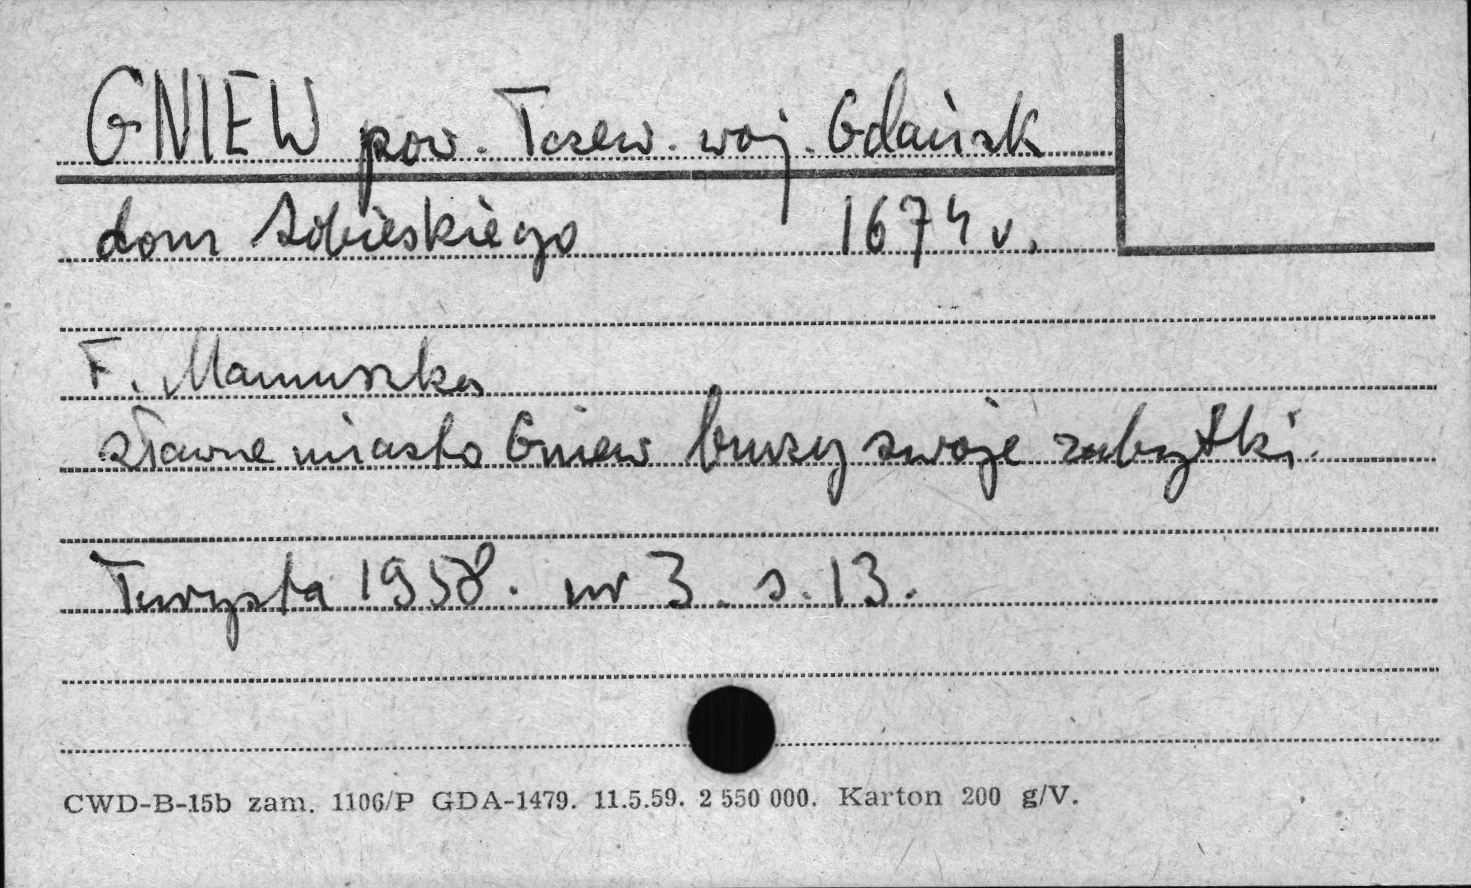 GNIEW pow. Tczew. woj. Gdańsk
dom Sobieskiego 1674 r.
F. Mamuszka
sławne miasto Gniew burzy swoje zabytki.
Turysta 1958. nr 3. s. 13.
CWD-B-15b zam. 1106/P GDA-1479. 11.5.59. 2 550 000. Karton 200 g/V.